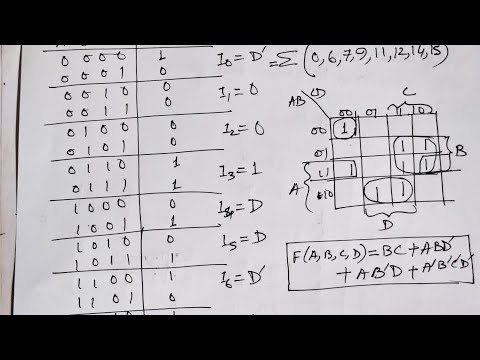 0 0 0 0 1
0 0 0 1 0
I₀ = D′
= Σ (0,6,7,9,11,12,14,15)
0 0 1 0 0
0 0 1 1 0
I₁ = 0
0 1 0 0 0
0 1 0 1 0
I₂ = 0
0 1 1 0 1
0 1 1 1 1
I₃ = 1
1 0 0 0 0
1 0 0 1 1
I₄ = D
1 0 1 0 0
1 0 1 1 1
I₅ = D
1 1 0 0 1
1 1 0 1 0
I₆ = D′
1
C
AB CD
00 01 11 10
00 1
01 1 1
B
A
11 1 1 1
10 1 1
D
F(A,B,C,D) = BC + ABD′
+ AB′D + A′B′C′D′